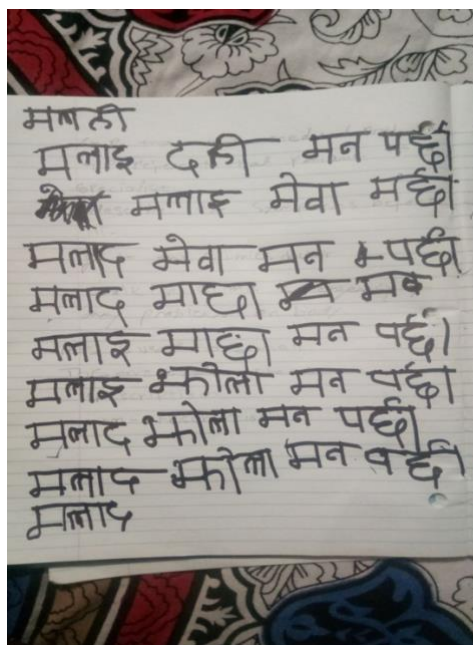 मलही
मलाइ दही मन पर्छ।
मलाइ मेवा मर्छ।
मलाद मेवा मन पर्छ।
मलाद माछा मन
मलाइ माछा मन पर्छ।
मलाइ झोला मन पर्छ।
मलाद झोला मन पर्छ।
मलाद झोला मन पर्छ।
मलाद